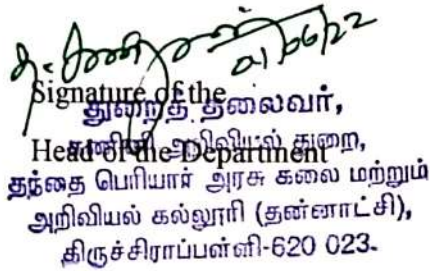 01/06/22
Signature of the
துறைத் தலைவர்,
Head of the Department
கணினி அறிவியல் துறை,
தந்தை பெரியார் அரசு கலை மற்றும்
அறிவியல் கல்லூரி (தன்னாட்சி),
திருச்சிராப்பள்ளி-620 023.